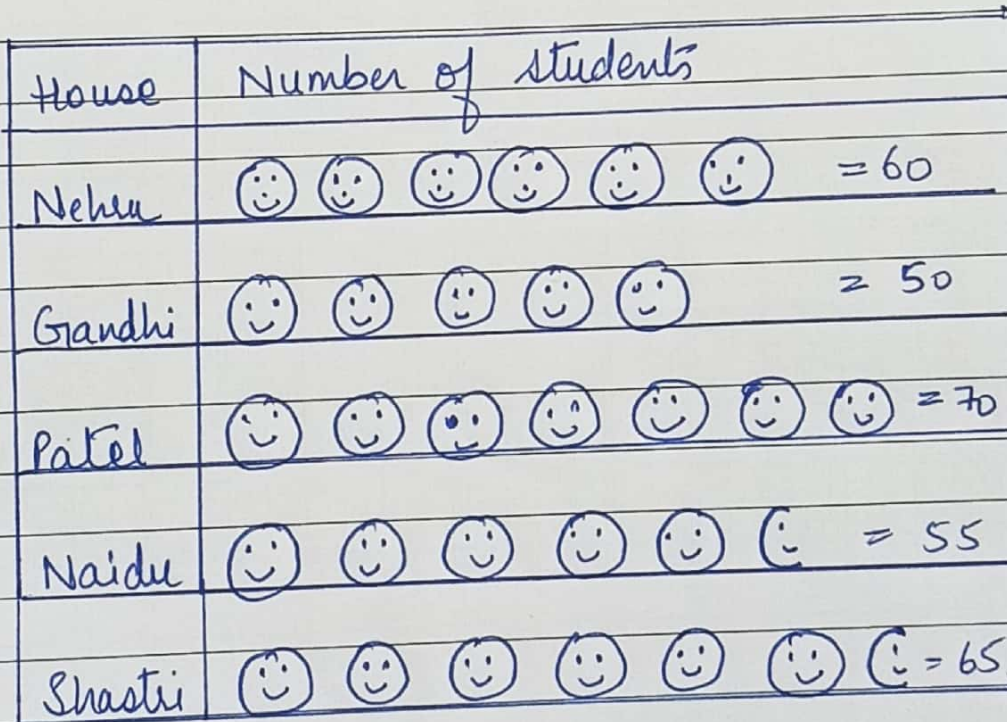 House Number of students
Nehru = 60
Gandhi = 50
Patel = 70
Naidu = 55
Shastri = 65